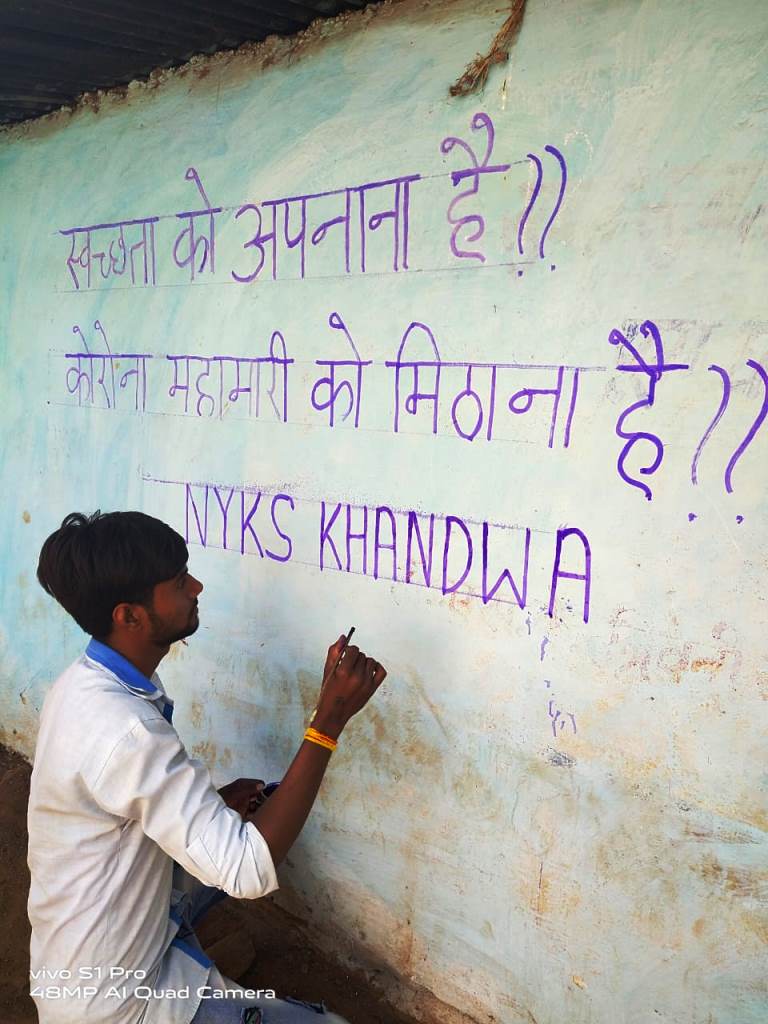 स्वच्छता को अपनाना है!!
कोरोना महामारी को मिठाना है!!
NYKS KHANDWA
vivo S1 Pro
48MP AI Quad Camera